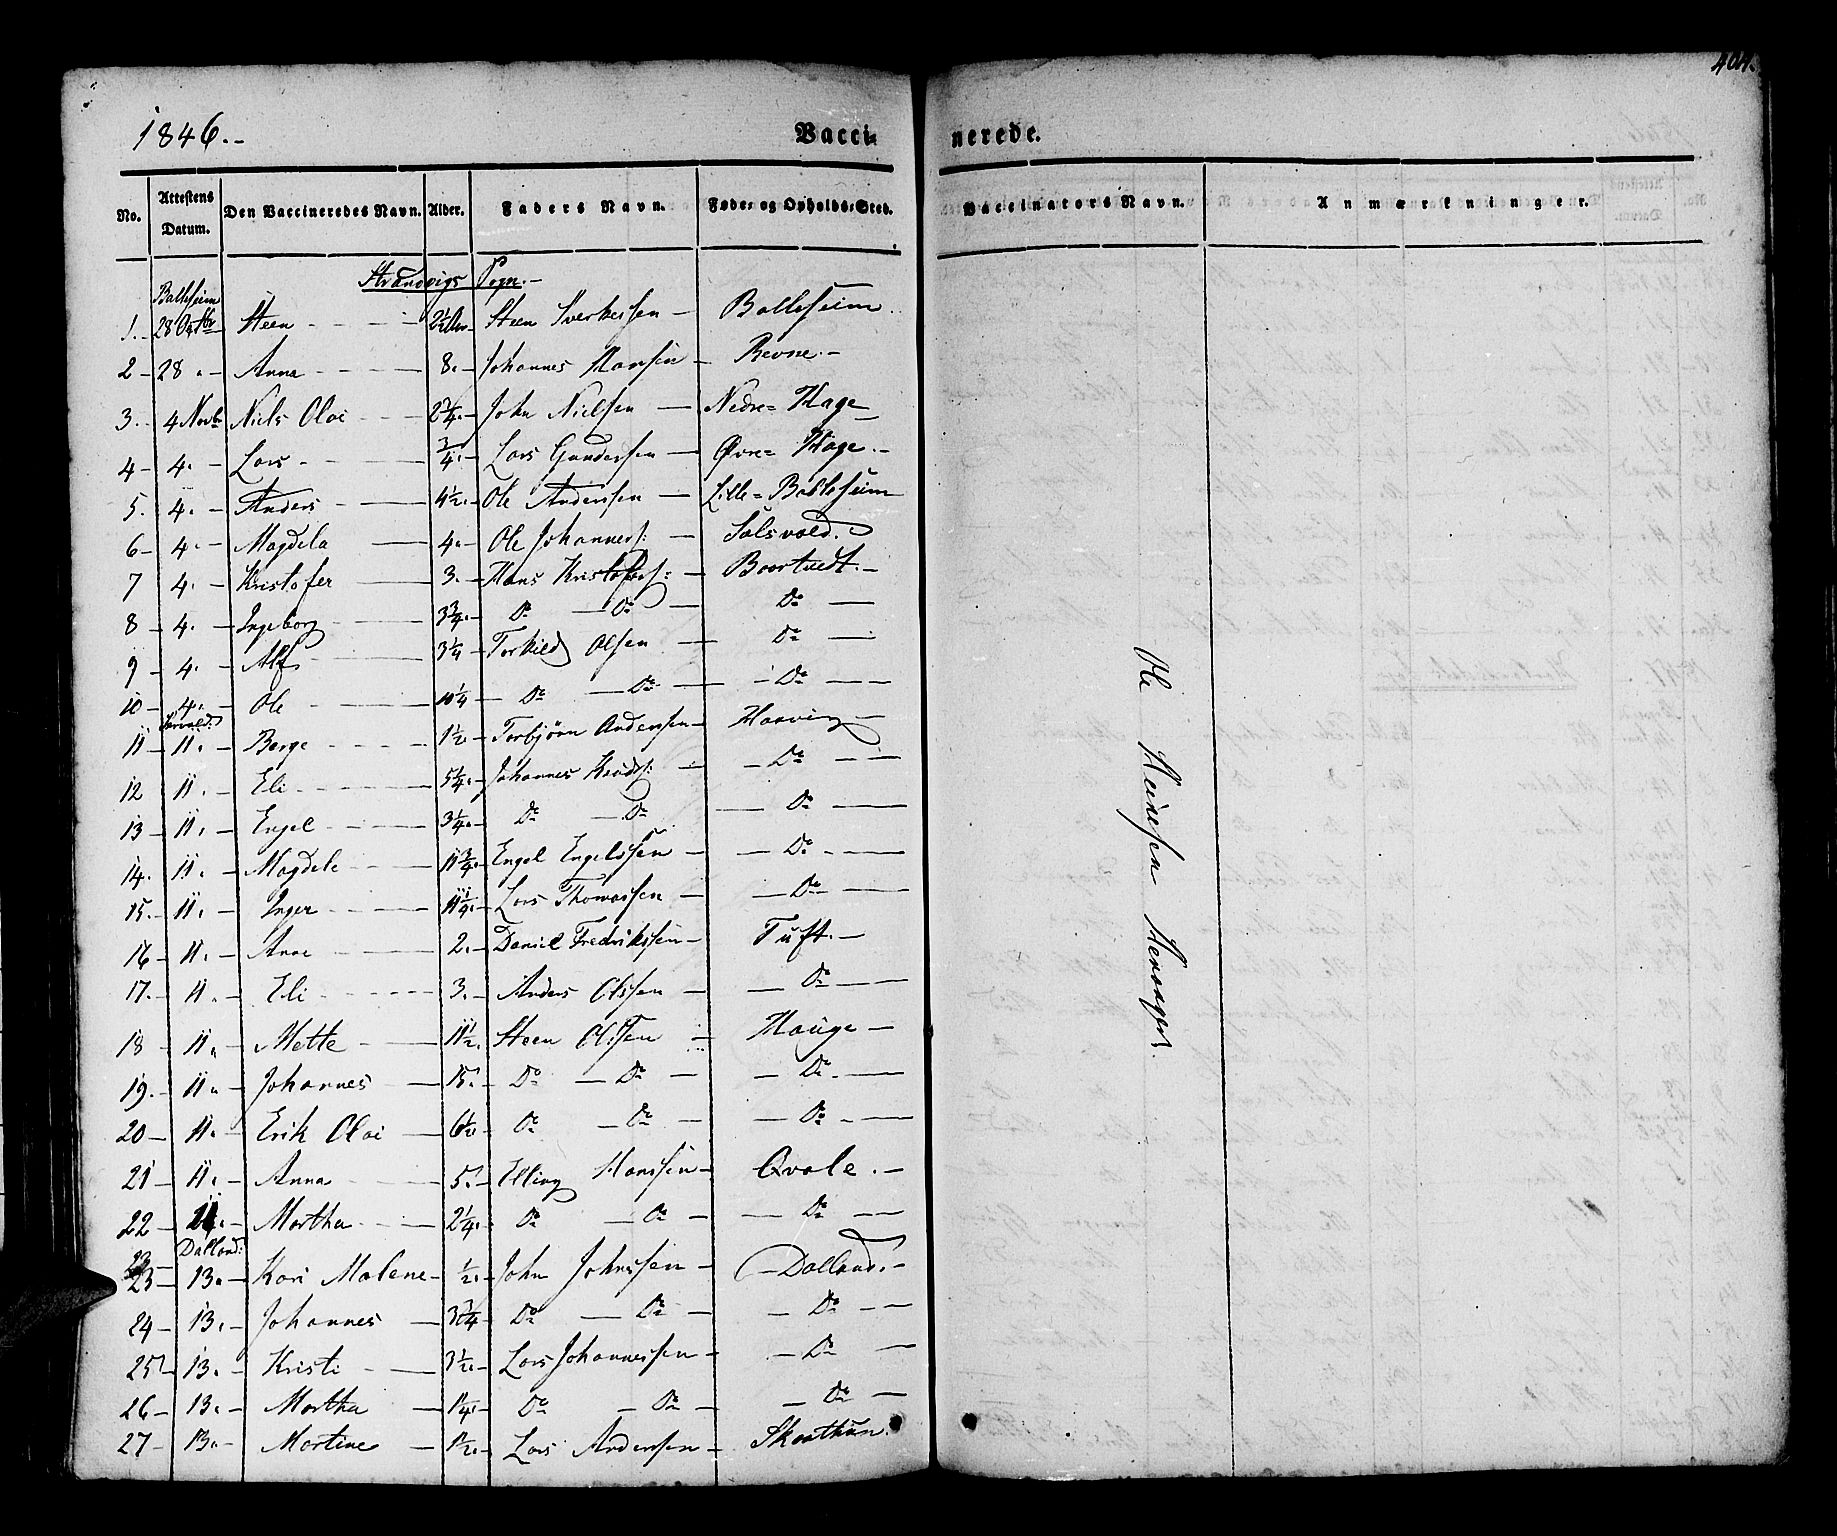 404.
1846.-
Vaccinerede.
No. Attestens Datum. Den Vaccineredes Navn. Alder. Faders Navn. Føde- og Opholds-Sted. Vaccinators Navn. Anmærkninger.
Strandvigs Sogn.-
Balleseim
1. 28 Octbr Steen 2½ Aar Steen Sverkessen Balleseim.
2 28 Anna 8. Johannes Hansen Revne.
3. 4 Novbr Niels Olai 2¾. John Nielsen Nedre= Hage
4 4. Lars ¾. Lars Gundersen Øvre= Hage.
5. 4. Anders 4½. Ole Andersen Lille= Balleseim
6 4. Magdela 4. Ole Johanness: Salsvold.
7 4. Kristofer 3. Hans Kristofers: Boortvedt.
8 4. Ingeborg 3¾. Do Do Do
9 4. Alf 3¼ Torkild Olsen Do
10 4. Ole 10¼ Do Do Do
11 11. Børge 1½ Torbjørn Andersen Haavig
12 11. Eli 5¼. Johannes Knuds: Do
13 11. Engel 3¼. Do Do Do
14. 11. Magdele 11¾. Engel Engelssen Do
15. 11. Inger 11¼. Lars Thomassen Do
16 11. Anne 2. Daniel Fredrikssen Tuft.
17. 11. Eli 3. Anders Olssen Do
18 11. Mette 11½. Steen Olssen Hauge
19. 11. Johannes 15. Do Do Do
20 11. Erik Olai 6½ Do Do Do
21 11. Anna 5. Elling Hanssen Qvale.
22 11. Martha 2¼. Do Do Do
Dalland:
23 13. Kari Malene ½. John Johnssen Dalland.
24 13. Johannes 3¾ Do Do Do
25 13. Kristi 3½. Lars Johannessen Do
26 13. Martha 1¼. Do Do Do
27 13. Martine 1½. Lars Andersen Skaathun.
Ole Heinesen